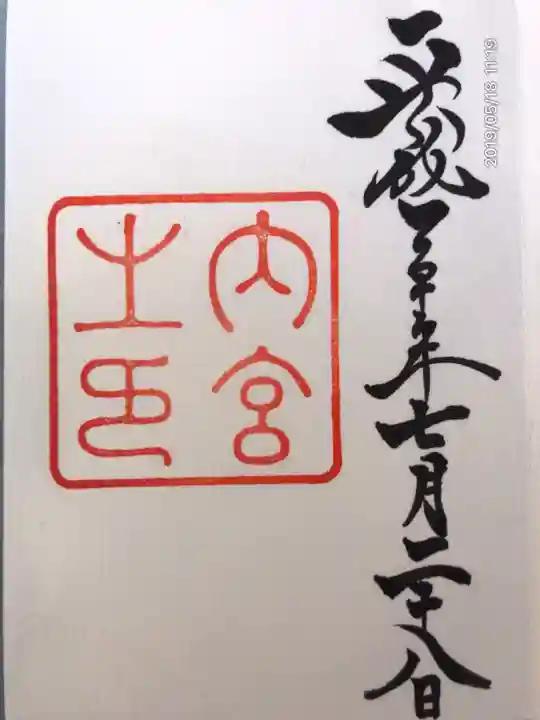 平成三十年七月二十八日
内宮
之印
2019/05/18 11:19